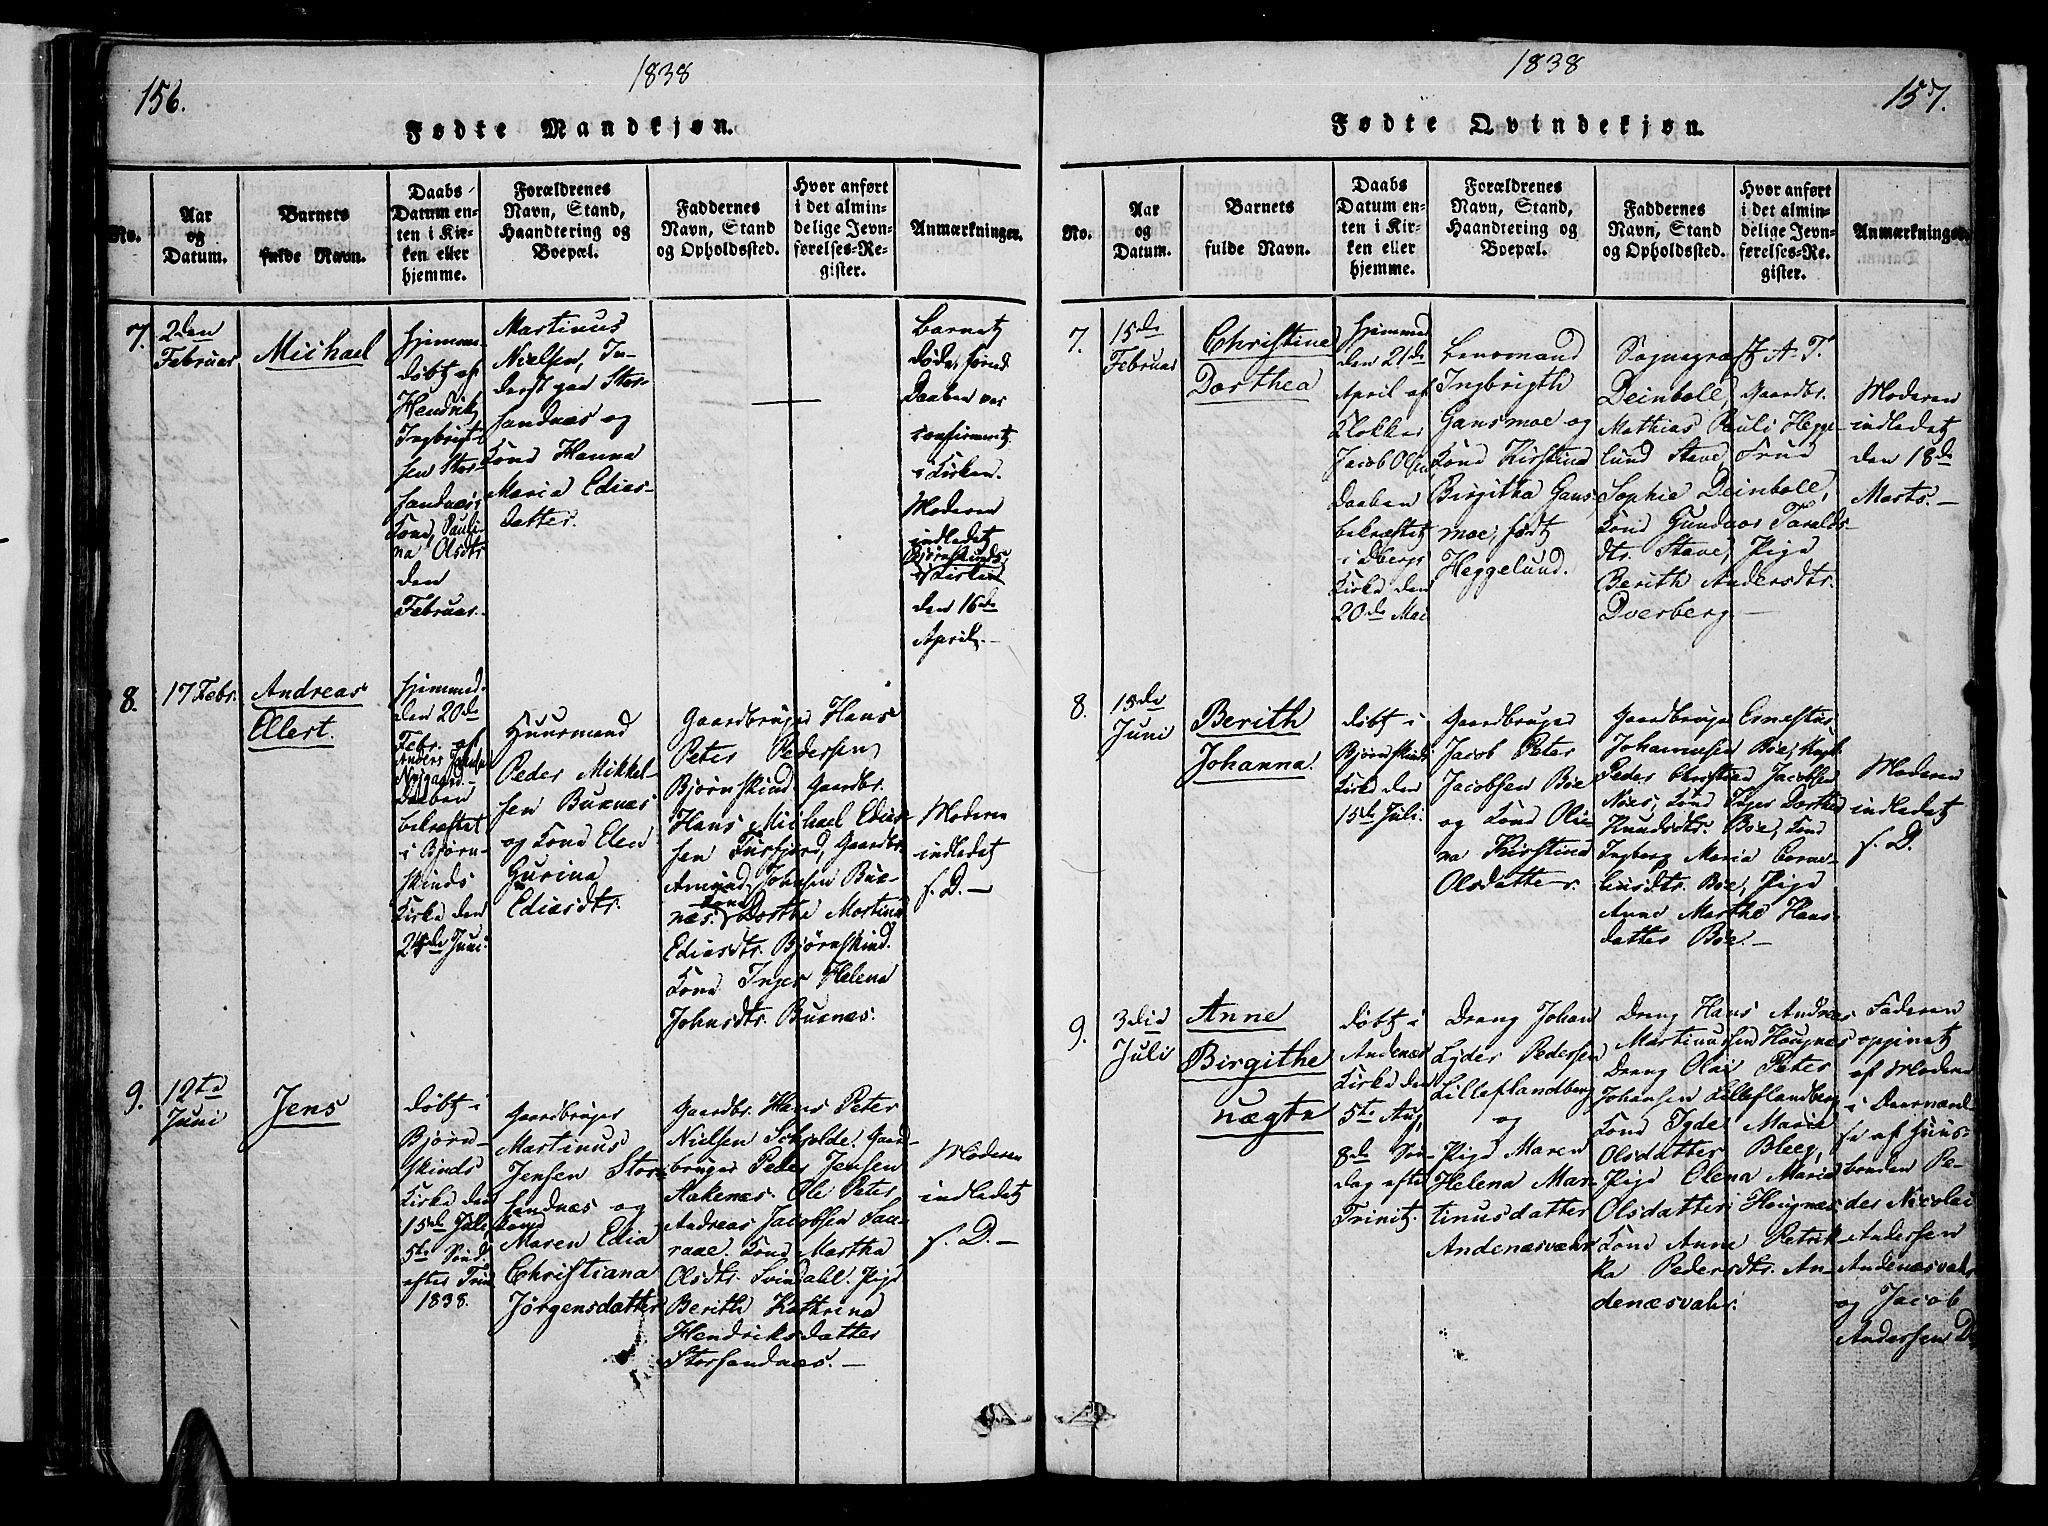 156.
1838
Fødte Mandkjøn.
No.
Aar
og
Datum.
Barnets
fulde Navn.
Daabs
Datum en-
ten i Kir-
ken eller
hjemme.
Forældrenes
Navn, Stand,
Haandtering og
Boepæl.
Faddernes
Navn, Stand
og Opholdssted.
Hvor anført
i det almin-
delige Jevn-
førelses-Re-
gister.
Anmærkninger.
7.
2den
Februar
Michael
Hjemme-
døbt af
Hendrik
Ingbrigt-
sen Stor-
sandnæs,
Kone, Pauli-
na Olsdtr
den
Februar.
Martinus
Nielsen, In-
derst paa Stor-
sandnæs og
Kone Hanna
Maria Edias-
datter.
—
Barnet
døde, forend
Daaben var
confirmeret
i Kirken.
Moderen
indledet
Bjørnskinds
Kirke
den 16de
April.—
8.
17 Febr.
Andreas
Ellert.
Hjemmed.
den 20de
Febr. af
Anders
Nygaard
Daaben
bekræftet
i Bjørn-
skinds
Kirke den
24de Juni.
Huusmand
Peder Mikkel-
sen Buenæs
og Kone Elen
Gurina
Ediasdtr.
Gaardbruger Hans
Peter Pedersen
Bjørnskind, Gaardbr.
Hans Michael Edias-
sen Fusfjord, Gaardbr.
Amund Johnsen Bue-
næs. Kone Dorthe Martina
Ediasdtr. Bjørnskind.
Kone Inger Helena
Johnsdtr. Buenæs.
Moderen
indledet
s. D.—
9.
12te
Juni
Jens
Døbt i
Bjørn-
skinds
Kirke den
15de Juli,
5te Sønd.
efter Trin
1838.
Gaardbruger
Martinus
Jensen Stor-
sandnæs og
Kone
Maren Edia
Christiana
Jørgensdatter
Gaardbr. Hans Peter
Nielsen Schjolde. Gaard-
bruger Peder Jensen
Aakenæs. Ole Peter
Andreas Jacobsen Sau-
raae. Kone Martha
Olsdtr. Svindahl. Pige
Berith Kathrina
Hendriksdatter
Storsandnæs.—
Moderen
indledet
s. D.—
1838
157.
Fødte Qvindekjøn.
No.
Aar
og
Datum.
Barnets
fulde Navn.
Daabs
Datum en-
ten i Kir-
ken eller
hjemme.
Forældrenes
Navn, Stand,
Haandtering og
Boepæl.
Faddernes
Navn, Stand
og Opholdssted.
Hvor anført
i det almin-
delige Jevn-
førelses-Re-
gister.
Anmærkninger.
7.
15de
Februar
Christine
Dorthea
Hjemmed
den 21de
April af
Klokker
Jacob Olsen
Daaben
bekræftet
i Dbergs
Kirke den
20de Mai
Lensmand
Ingbrigth
Gansmoe og
Kone Kirstina
Birgitha Gans-
moe, født
Heggelund.
Sognepræst A. T.
Deinboll, Gaardbr.
Mathias Pauli Hegge-
lund Stave, Frue
Sophie Deinboll,
Kone Gunduor Taralds-
dtr. Stave, Pige
Berith Andersdtr.
Dverberg—
Moderen
indledet
den 18de
Marts.—
8.
15de
Juni
Berith
Johanna.
Døbt i
Bjørnskinds
Kirke den
15de Juli.
Gaardbruger
Jacob Peter
Jacobsen Böe
og Kone Oli-
na Kirstina
Olsdatter.
Gaardbruger Ernestus
Johannesen Böe, Ungk.
Peder Christian Jacobsen
Nöes, Kone Inger Dorthea
Knudsdtr. Böe, Kone
Ingberg Maria Corne-
liusdtr. Böe, Pige
Anne Marthe Hans-
datter Böe.—
Moderen
indledet
s. D.
9.
3die
Juli
Anne
Birgithe
uægte
Døbt i
Andenæs
Kirke den
5te Aug,
8de Søn-
dag efter
Trinit.
Dreng Johan
Lyder Pedersen
Lilleflandberg
og
Pige Maren
Helena Mar-
tinusdatter
Andenæsvahr
Dreng Hans Andreas
Martinussen Hougnæs
Dreng Olai Peter
Johansen Lilleflandberg
Kone Igde Maria
Olsdatter Bleeg,
Pige Olena Maria
Olsdatter Hougnæs
Kone Anne Petrik-
ka Pedersdtr. An-
denæsvahr.
Faderen
opgivet
af Moderen
i Overvæ-
se af Huus-
bonden Pe-
der Nicolai
Andersen
Andenæsvahr
og Jacob
Andersen